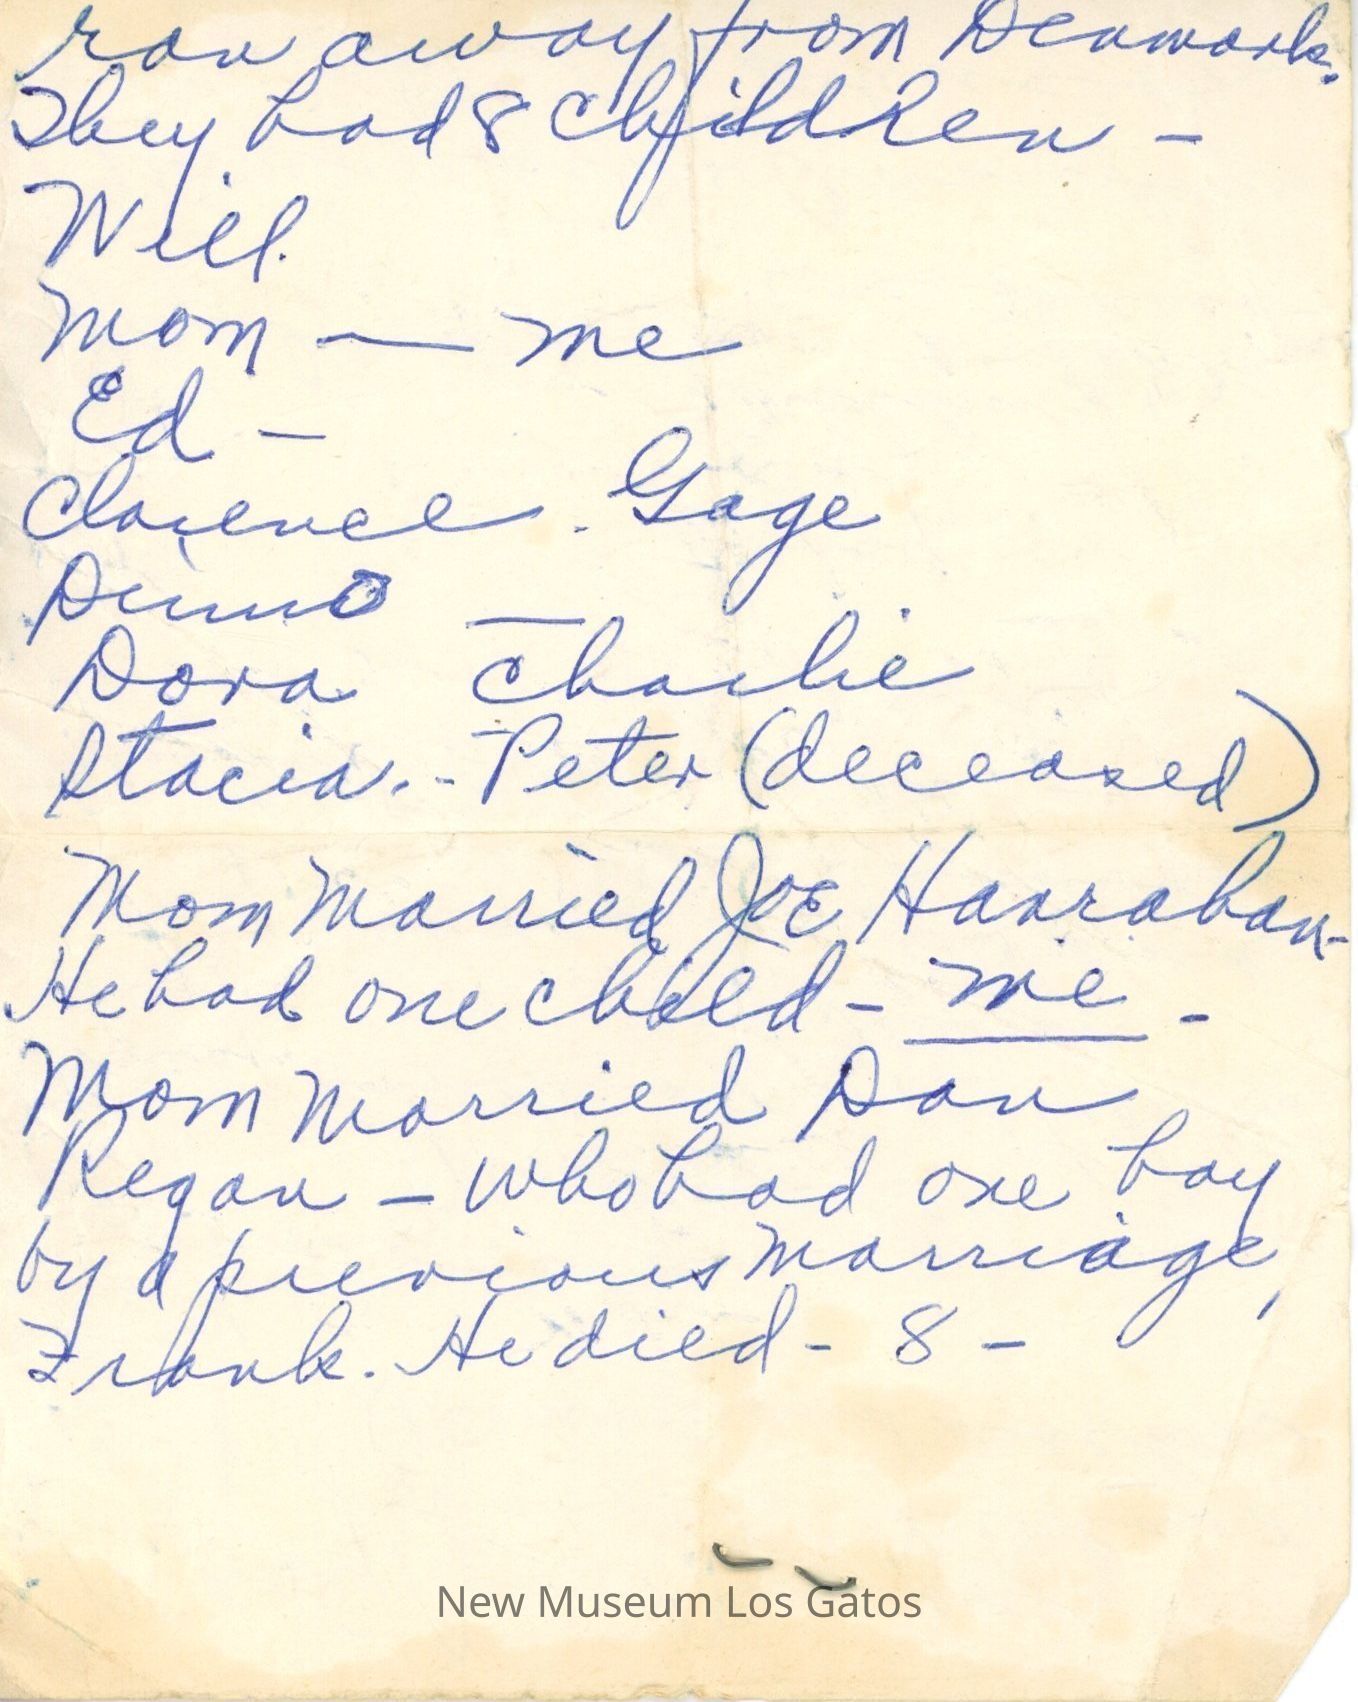 ran away from Denmark.
They had 8 children -
Will.
Mom — me
Ed -
Clarence. Gage
—
Dora Charlie
Stacia.-- Peter (deceased)
Mom Married Joe Hanrahan-
He had one child - me -
Mom Married Dan
Regan - who had one boy
by a previous Marriage,
Frank. He died - 8 -
New Museum Los Gatos